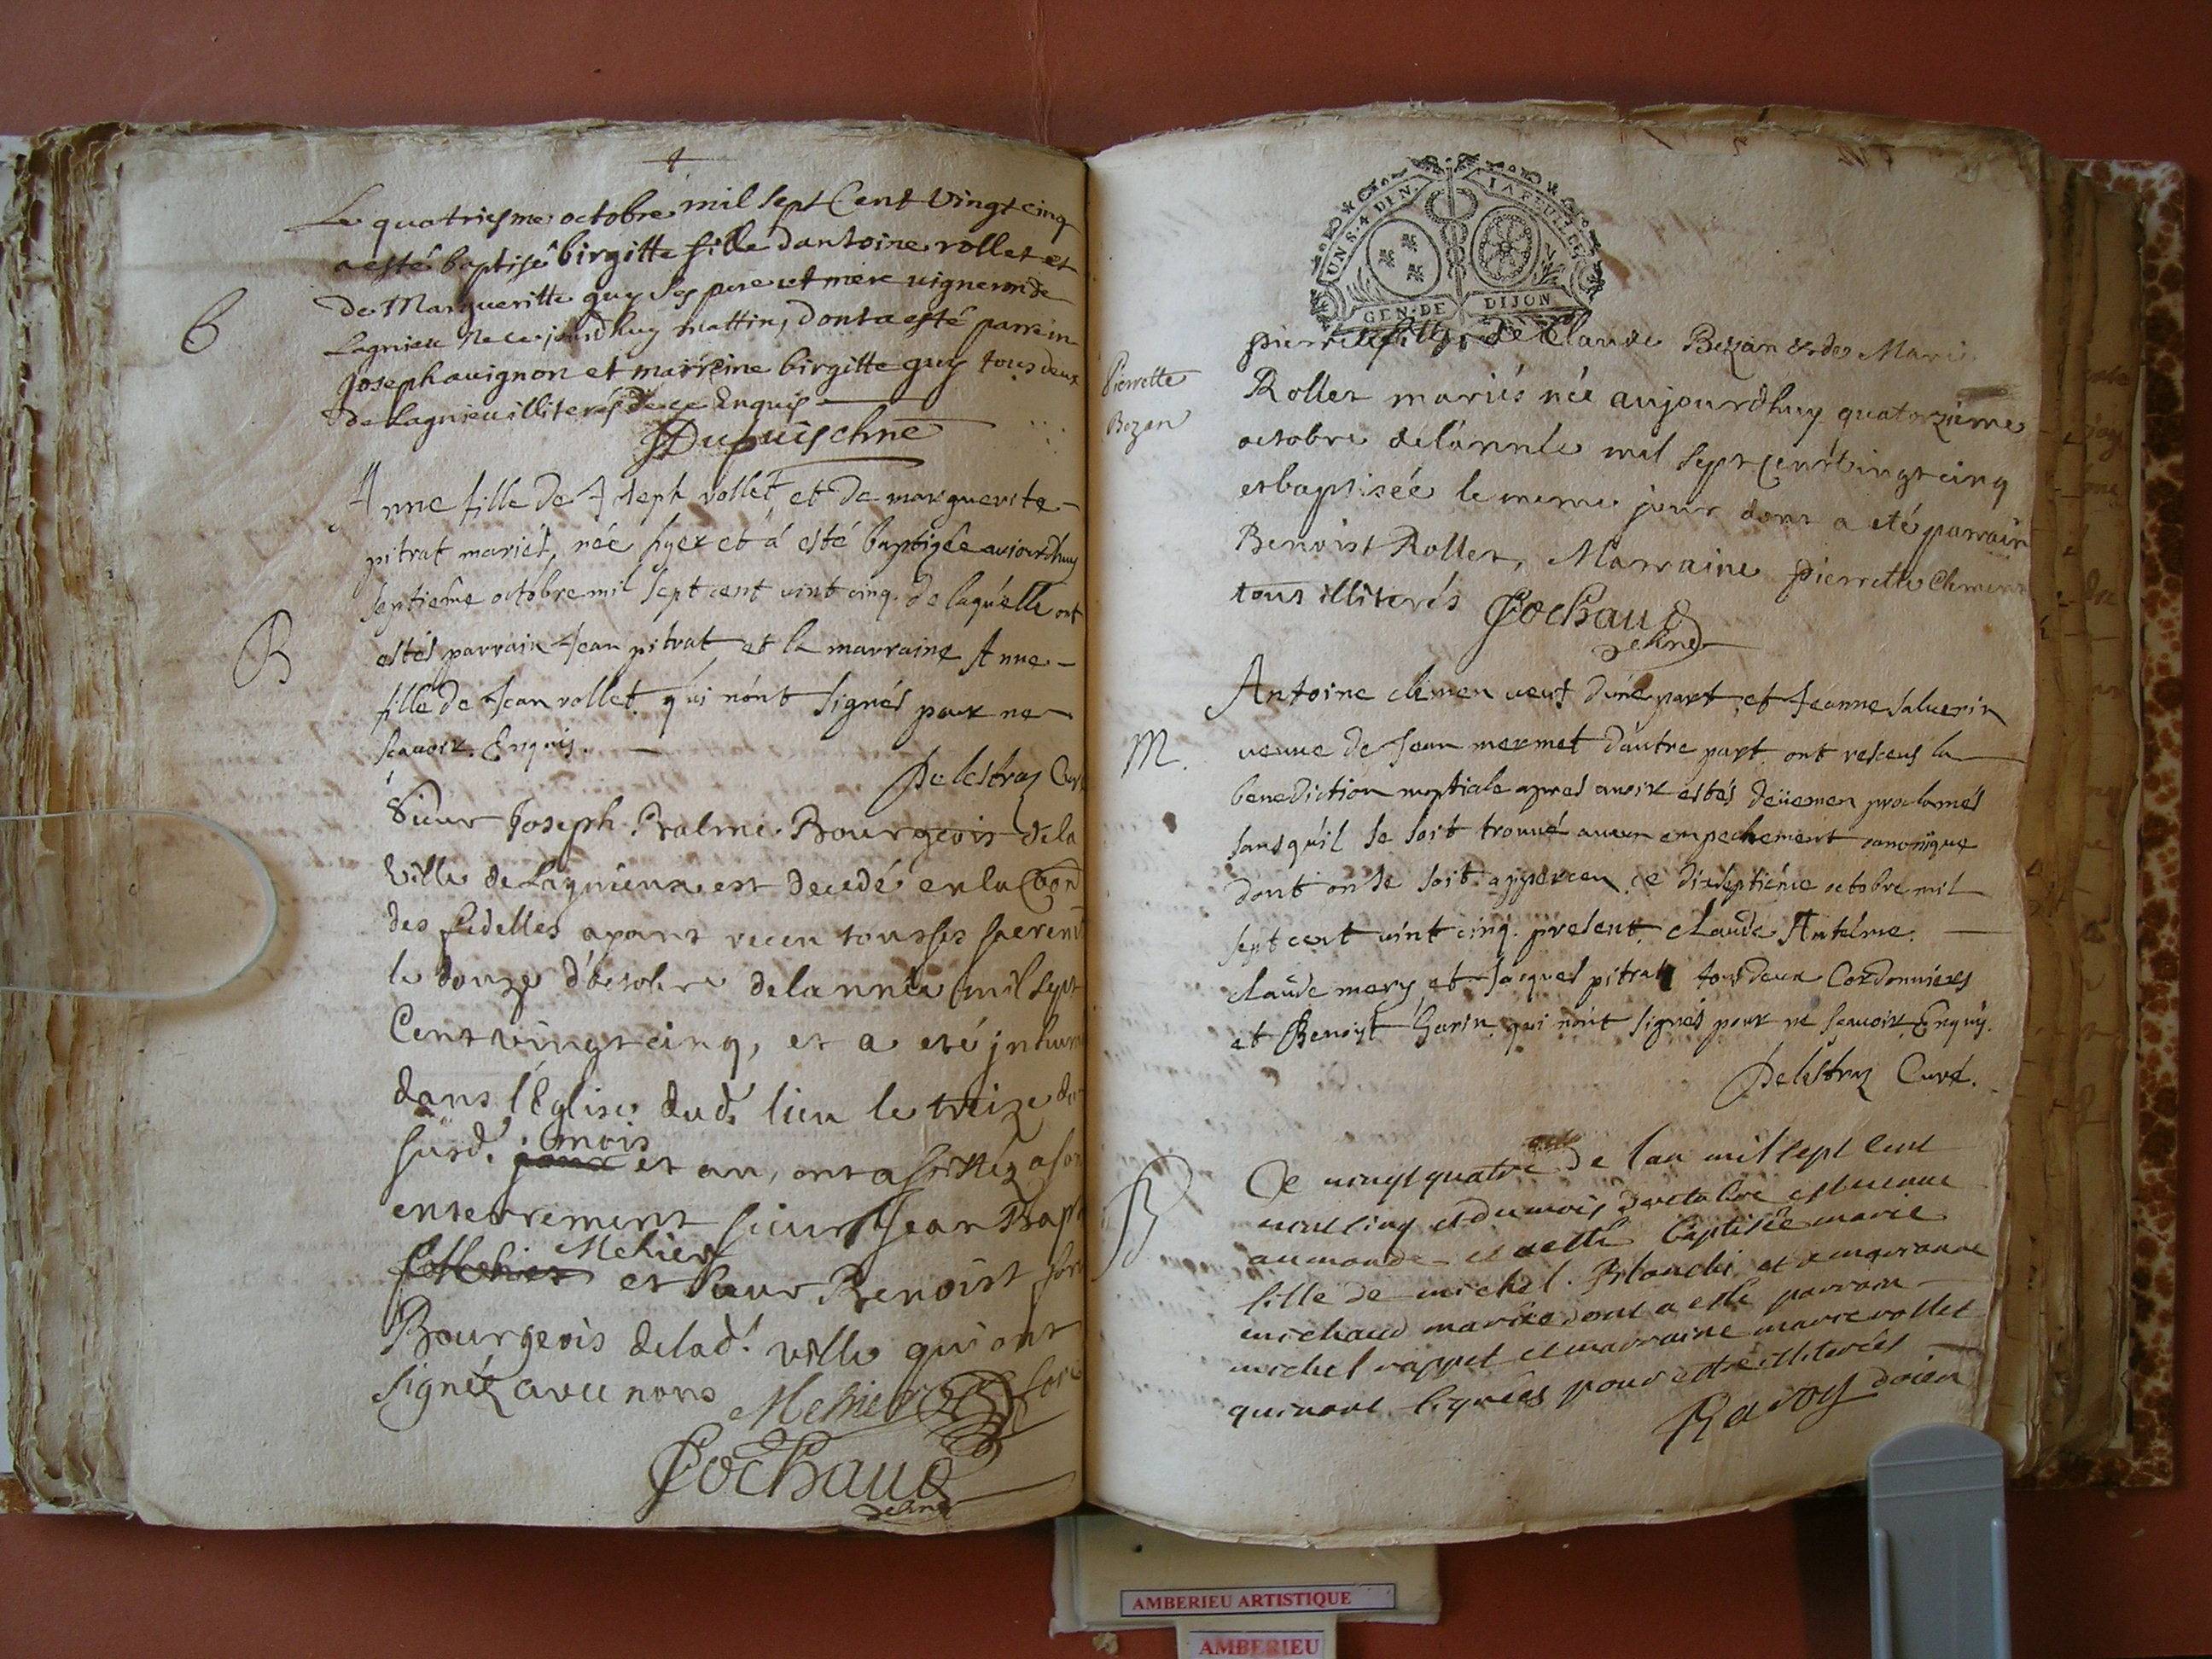 Le quatriesme octobre mil sept Cent Vingt cinq
a esté baptisé birgitte fille dantoine rollet et
de Margueritte guy ses pere et mere vigneron de
Lagnieu né ce jourdhuy mattin, dont a esté parrein
Joseph auignon et marreine birgitte guy tous deux
de Lagnieu illiterés de ce Enquis
Dupuis chne
B
Anne fille de Joseph rollet, et de marguerite
pitrat mariés, née hyer et a esté baptizée aujourdhuy
septieme octobre mil sept cent vint cinq. de laquelle ont
estés parrain Jean pitrat et la marraine Anne
fille de Jean rollet qui n'ont signés pour ne
scauoir. Enquis.
B
Delestraz Curé
Sieur Joseph Balme Bourgeois de la
Ville de Lagnieux est decedé en la Con
des fidelles ayant receu tous ses
le douze d'octobre de lannée mil sept
Cent vingt cinq, et a eté
dans l'Eglise dud. lieu le treize du
susd. mois et an, ont assistéz a son
enterrement sieur Jean Bapt
Mehier et sieur Benoist
Bourgeois de lad. ville qui ont
signéz avec nous Mehier
Cochaud
chne
UN S. 4 DEN. LA FEUILLE
GEN. DE DIJON
Pierrette
Bozan
pierrette fille de Claude Bozan & de Marie
Rollet mariés née aujourdhuy quatorzieme
octobre de l'année mil sept Cent vingt cinq
et baptisée le meme jour dont a eté parrain
Benoist Rollet, Marraine pierrette Clement
tous illiterés Cochaud
chne
M.
Antoine climen veuf d'une part, et Jeanne saluerin
veuue de Jean mermet d'autre part ont resceus la
benediction nuptiale apres auoir estés deüemen proclamés
sans qu'il se soit trouué aucun empechement canonique
dont on se soit apperceu. ce dixseptième octobre mil
sept cent vint cinq. present. claude Antelme.
claude mery, et Jacques pitrat tous deux Cordonniers
et Benoist Garin qui n'ont signés pour ne scauoir. Enquis.
Delestraz Curé.
B
Ce vingt quatre de l'an mil sept Cent
vint cinq et du mois doctobre est venue
au monde et a esté baptisée marie
fille de michel Blanchi et de
michaud mariés dont a esté parrain
michel rappet et marraine marie rollet
qui nont signées pour estre illiterées
Ravoy doien
AMBERIEU ARTISTIQUE
AMBERIEU